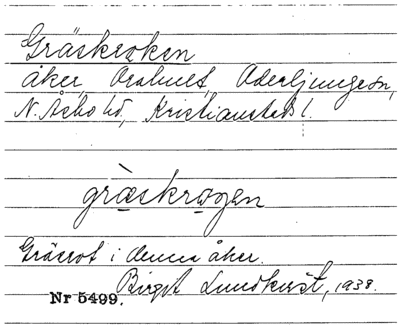 Gräskroken
åker, Orahult, Oderljungasn,
N. Åsbo hd, Kristianstads l.
græskrogen
Gräsrot i denna åker.
Birgit Lundkvist, 1938.
Nr 5499.